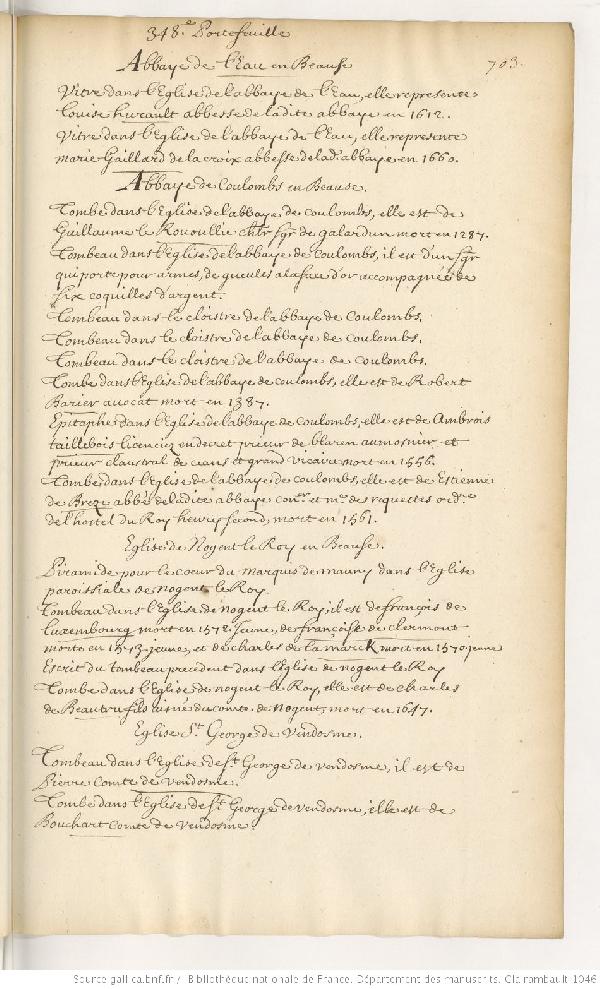 348.e Portefeuille
703.
Abbaye de l'Eau en Beausse
Vitre dans l'Eglise de l'abbaye de l'Eau, elle represente
Louise hurault abbesse de ladite abbaye en 1612.
Vitre dans l'Eglise de l'abbaye de l'Eau, elle represente
marie Gaillard de la croix abbesse de lad. abbaye en 1660.
Abbaye de Coulombs en Beausse.
Tombe dans l'Eglise de l'abbaye de Coulombs, elle est de
Guillaume le chlr sgr de galardun mort en 1287.
Tombeau dans l'Eglise de l'abbaye de Coulombs, il est d'un sgr
qui porte pour armes, de gueules a la fasce d'or accompagnée de
six coquilles d'argent.
Tombeau dans le cloistre de l'abbaye de Coulombs.
Tombeau dans le cloistre de l'abbaye de Coulombs.
Tombeau dans le cloistre de l'abbaye de Coulombs.
Tombe dans l'Eglise de l'abbaye de coulombs, elle est de Robert
Barier avocat mort en 1387.
Epitaphe dans l'Eglise de l'abbaye de Coulombs, elle est de Ambrois
taillebois licenciez en decret prieur de aumosnier et
prieur claustral de ceans et grand vicaire mort en 1556.
Tombe dans l'Eglise de l'abbaye de coulombs, elle est de Estienne
de Breze abbé de ladite abbaye con.er et m.e des requettes ord.e
de l'hostel du Roy henry second, mort en 1561.
Eglise de Nogent le Roy en Beausse.
Piramide pour le coeur du marquis de mauny dans l'Eglise
paroissiale de nogent le Roy.
Tombeau dans l'Eglise de nogent le Roy, il est de françois de
Luxembourg mort en 1572. jeune, de françoise de clermont
morte en 1573. jeune, et de charles de la marck mort en 1570. jeune
Escrit du tombeau precedent dans l'Eglise de nogent le Roy
Tombe dans l'Eglise de nogent le Roy, elle est de charles
de Beautru fils aisné du comte de Nogent, mort en 1647.
Eglise St. George de Vendosme.
Tombeau dans l'Eglise de St. George de vendosme, il est de
Pierre Comte de Vendosme.
Tombe dans l'Eglise de St. George de vendosme, elle est de
Bouchart Comte de Vendosme.
Source gallica.bnf.fr / Bibliothèque nationale de France. Département des manuscrits. Clairambault 1046